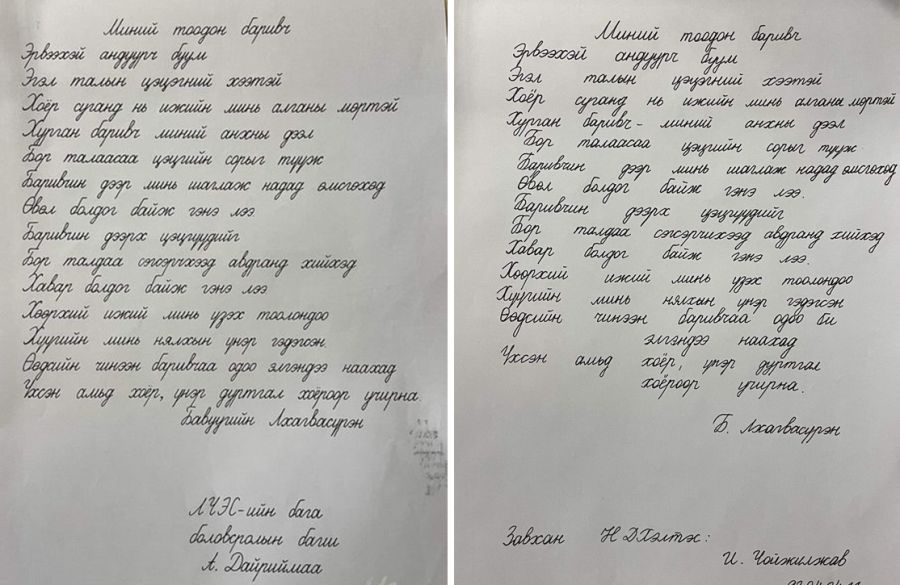 Миний тоодон баривч
Эрвээхэй андуурч буум
Эгэл талын цэцэгний хээтэй
Хоёр суганд нь ижийн минь алганы мөртэй
Хурган баривч миний анхны дээл
Бор талаасаа цэцгийн сорыг түүж
Баривчин дээр минь шаглаж надад өмсгөхөд
Өвөл болдог байж гэнэ лээ
Баривчин дээрх цэцгүүдийг
Бор талдаа сэгсэрчхээд авдранд хийхэд
Хавар болдог байж гэнэ лээ
Хөөрхий ижий минь үзэх тоолондоо
Хүүгийн минь нялхын үнэр гэдэгсэн.
Өөдсийн чинээн баривчаа одоо элгэндээ наахад
Үхсэн амьд хоёр, үнэр дуртгал хоёроор учирна.
Бавуугийн Лхагвасүрэн
ЛЧЭС-ийн бага
боловсролын багш
А. Дайриймаа
Миний тоодон баривч
Эрвээхэй андуурч буум
Эгэл талын цэцэгний хээтэй
Хоёр суганд нь ижийн минь алганы мөртэй
Хурган баривч - миний анхны дээл
Бор талаасаа цэцгийн сорыг түүж
Баривчин дээр минь шаглаж надад өмсгөхөд
Өвөл болдог байж гэнэ лээ.
Баривчин дээрх цэцгүүдийг
Бор талдаа сэгсэрчихээд авдранд хийхэд
Хавар болдог байж гэнэ лээ.
Хөөрхий ижий минь үзэх тоолондоо
Хүүгийн минь нялхын үнэр гэдэгсэн
Өөдсийн чинээн баривчаа одоо би
элгэндээ наахад
Үхсэн амьд хоёр, үнэр дуртгал
хоёроор учирна.
Б. Лхагвасүрэн
Завхан Н
И. Чойжилжав